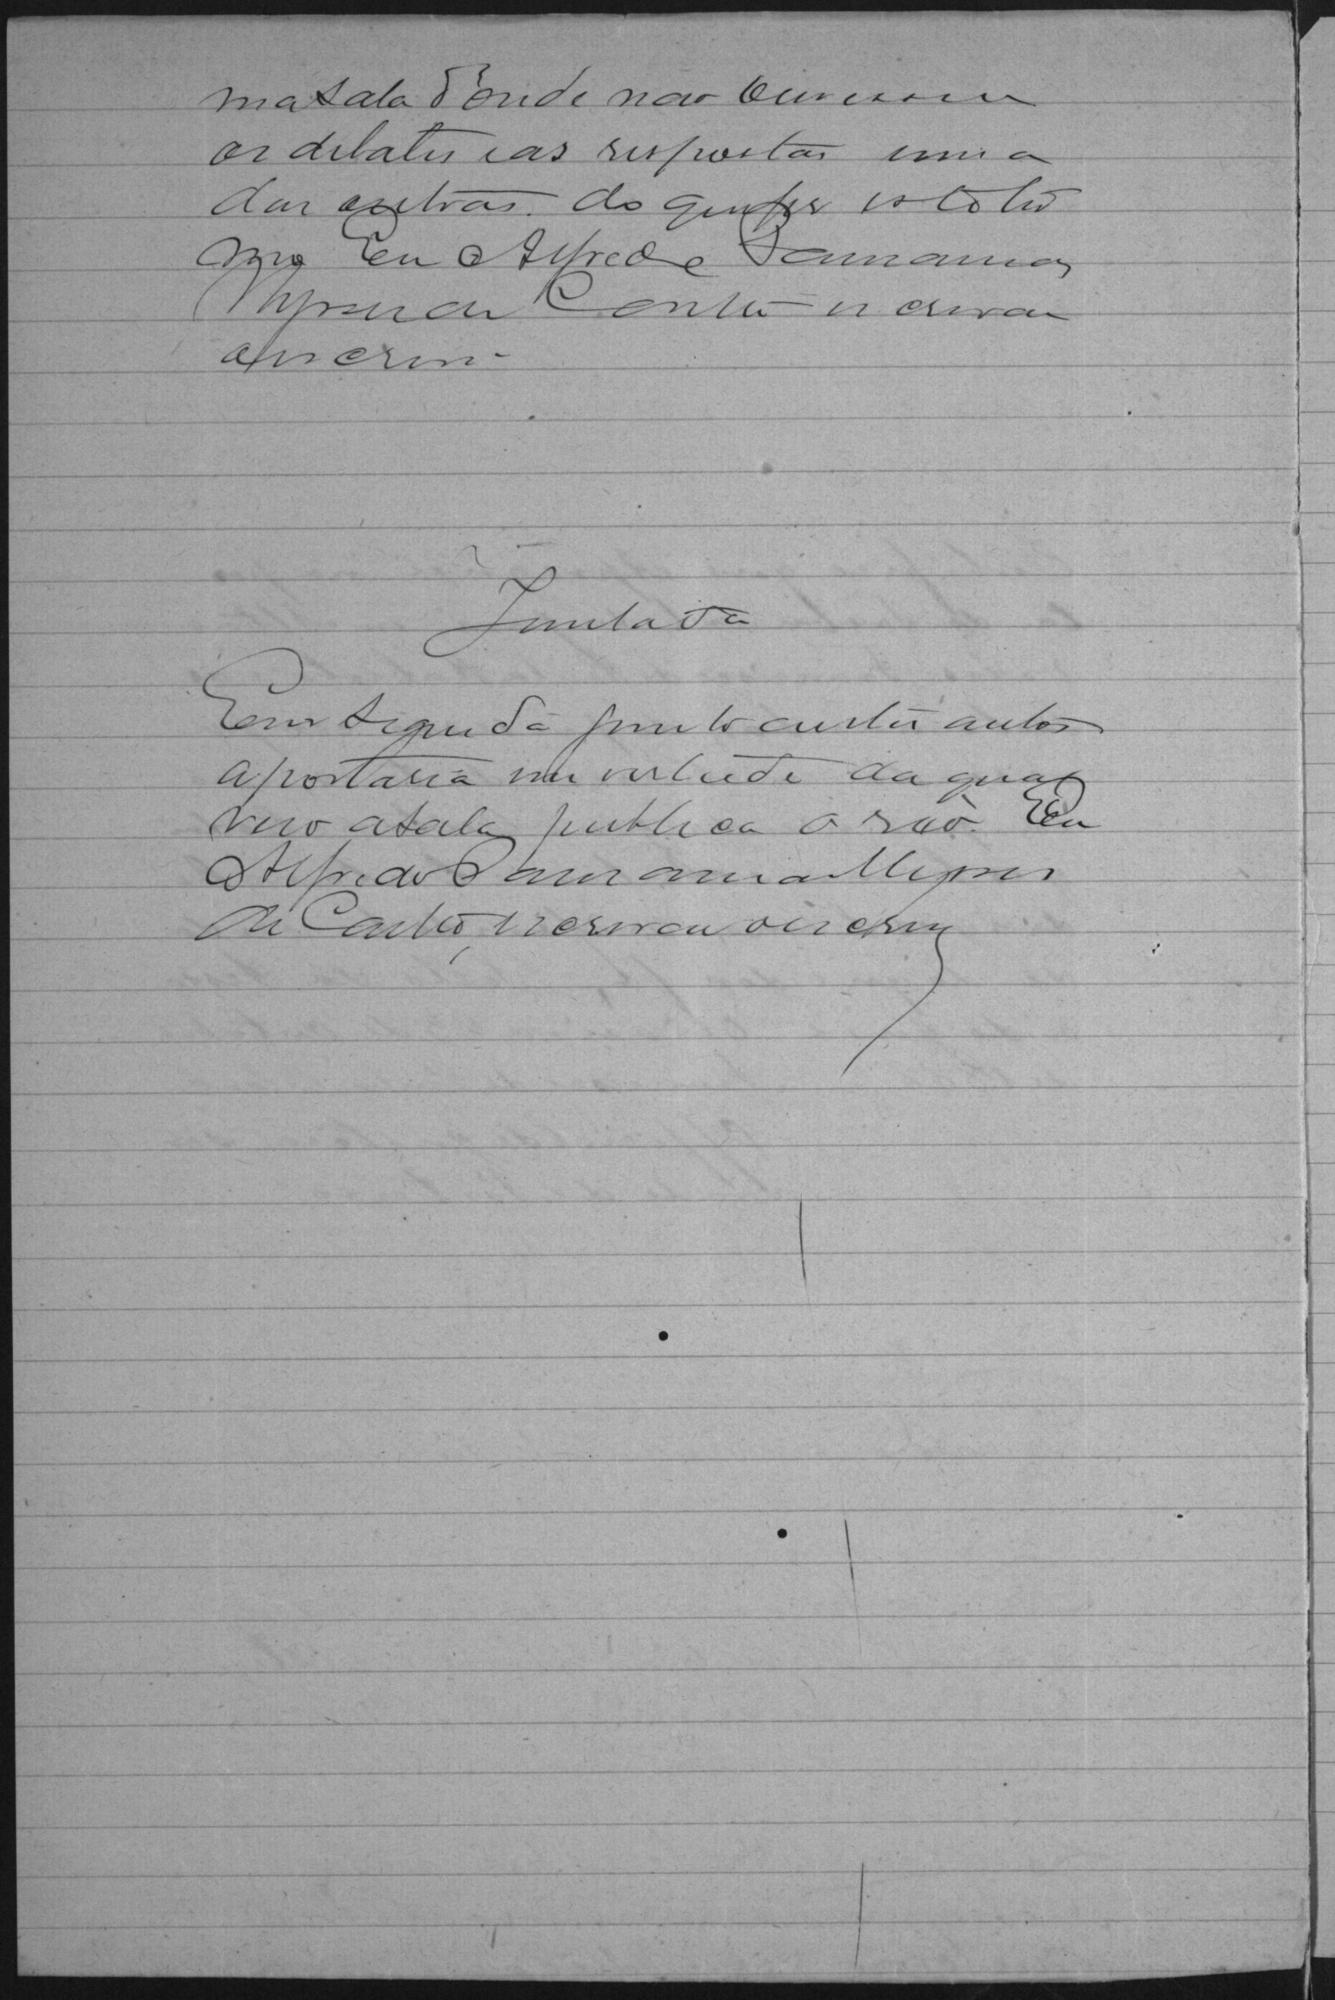 na sala d'onde não ouvissem
os debates e as respostas umas
das outras. do que fiz este ter
mo Eu Alfredo
de Castro escrivão
o escrevi.
Juntada
Em seguida junto a estes autos
a portaria em virtude da qual
veio a sala publica o réo. Eu
Alfredo
de Castro, escrivão o escrevy